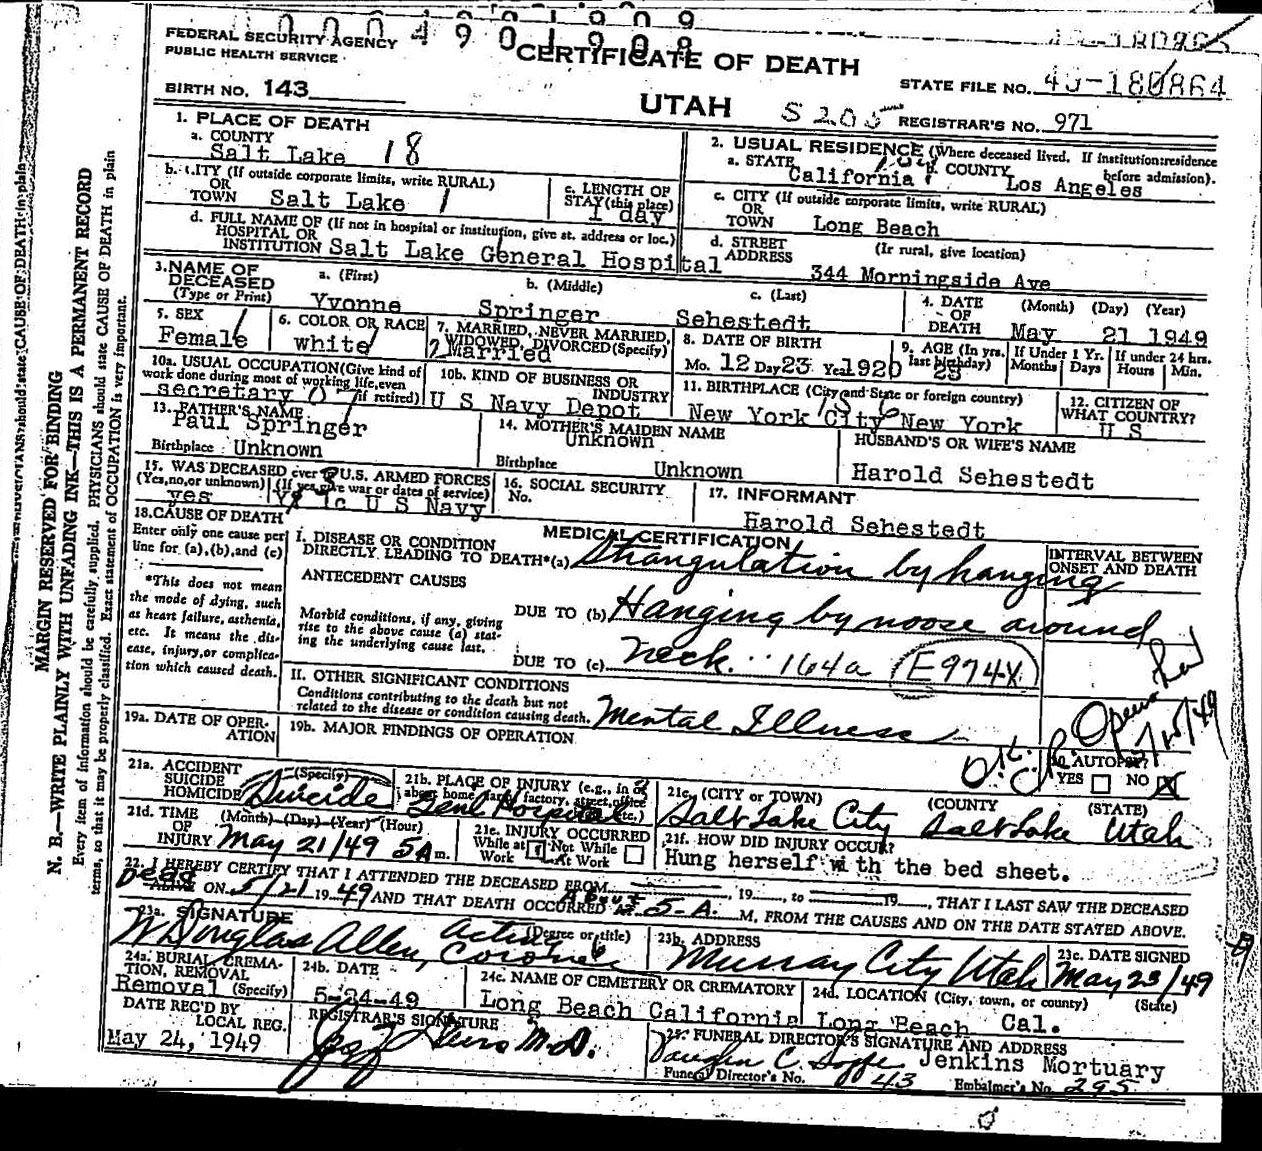 0004901909
FEDERAL SECURITY AGENCY
PUBLIC HEALTH SERVICE
CERTIFICATE OF DEATH
STATE FILE NO. 49-180864
BIRTH NO. 143
UTAH S205
REGISTRAR'S NO. 971
1. PLACE OF DEATH
a. COUNTY
Salt Lake 18
b. CITY (If outside corporate limits, write RURAL)
OR
TOWN Salt Lake 1
c. LENGTH OF
STAY (this place)
1 day
d. FULL NAME OF (If not in hospital or institution, give st. address or loc.)
HOSPITAL OR
INSTITUTION Salt Lake General Hospital
2. USUAL RESIDENCE (Where deceased lived. If institution: residence
before admission).
a. STATE
California
b. COUNTY
Los Angeles
c. CITY (If outside corporate limits, write RURAL)
OR
TOWN Long Beach
d. STREET (Ir rural, give location)
ADDRESS
344 Morningside Ave
3. NAME OF
DECEASED
(Type or Print)
a. (First)
Yvonne
b. (Middle)
Springer
c. (Last)
Sehestedt
4. DATE
OF
DEATH
(Month) (Day) (Year)
May 21 1949
5. SEX
Female
6. COLOR OR RACE
white
7. MARRIED, NEVER MARRIED,
WIDOWED, DIVORCED (Specify)
Married
8. DATE OF BIRTH
Mo. 12 Day 23 Yr. 1920
9. AGE (In yrs.
last birthday)
If Under 1 Yr.
Months Days
If under 24 hrs.
Hours Min.
10a. USUAL OCCUPATION (Give kind of
work done during most of working life, even
if retired)
secretary
10b. KIND OF BUSINESS OR
INDUSTRY
U S Navy Depot
11. BIRTHPLACE (City and State or foreign country)
New York City New York
12. CITIZEN OF
WHAT COUNTRY?
U S
13. FATHER'S NAME
Paul Springer
Birthplace Unknown
14. MOTHER'S MAIDEN NAME
Unknown
Birthplace Unknown
HUSBAND'S OR WIFE'S NAME
Harold Sehestedt
15. WAS DECEASED ever in U.S. ARMED FORCES
(Yes, no, or unknown) (If yes give war or dates of service)
yes 1c U S Navy
16. SOCIAL SECURITY
No.
17. INFORMANT
Harold Sehestedt
18. CAUSE OF DEATH
Enter only one cause per
line for (a), (b), and (c)
*This does not mean
the mode of dying, such
as heart failure, asthenia,
etc. It means the dis-
ease, injury, or complica-
tion which caused death.
MEDICAL CERTIFICATION
I. DISEASE OR CONDITION
DIRECTLY LEADING TO DEATH* (a) Strangulation by hanging
INTERVAL BETWEEN
ONSET AND DEATH
ANTECEDENT CAUSES
Morbid conditions, if any, giving
rise to the above cause (a) stat-
ing the underlying cause last.
DUE TO (b) Hanging by noose around
DUE TO (c) neck. 164a E974X
II. OTHER SIGNIFICANT CONDITIONS
Conditions contributing to the death but not
related to the disease or condition causing death.
Mental Illness
19a. DATE OF OPER-
ATION
19b. MAJOR FINDINGS OF OPERATION
20. AUTOPSY?
YES NO X
21a. ACCIDENT
SUICIDE
HOMICIDE
(Specify)
Suicide
21b. PLACE OF INJURY (e.g., in or
about home, farm, factory, street, office
etc.)
Genl Hospital
21c. (CITY or TOWN) (COUNTY (STATE)
Salt Lake City Salt Lake Utah
21d. TIME
OF
INJURY
(Month) (Day) (Year) (Hour)
May 21/49 5A m.
21e. INJURY OCCURRED
While at Work Not While At Work
21f. HOW DID INJURY OCCUR?
Hung herself with the bed sheet.
22. I HEREBY CERTIFY THAT I ATTENDED THE DECEASED FROM 19 , to 19 , THAT I LAST SAW THE DECEASED
Dead
ALIVE ON 5/21 1949 AND THAT DEATH OCCURRED About 5-A. M, FROM THE CAUSES AND ON THE DATE STATED ABOVE.
23a. SIGNATURE (Degree or title)
W Douglas Allen, Acting Coroner
23b. ADDRESS
Murray City Utah
23c. DATE SIGNED
May 23/49
24a. BURIAL, CREMA-
TION, REMOVAL
Removal (Specify)
24b. DATE
5-24-49
24c. NAME OF CEMETERY OR CREMATORY
Long Beach California
24d. LOCATION (City, town, or county) (State)
Long Beach Cal.
DATE REC'D BY
LOCAL REG.
May 24, 1949
REGISTRAR'S SIGNATURE
M.D.
25. FUNERAL DIRECTOR'S SIGNATURE AND ADDRESS
Jenkins Mortuary
Funeral Director's No. 43 Embalmer's No. 295
MARGIN RESERVED FOR BINDING
N. B.—WRITE PLAINLY WITH UNFADING INK—THIS IS A PERMANENT RECORD
Every item of information should be carefully supplied. PHYSICIANS should state CAUSE OF DEATH in plain
terms, so that it may be properly classified. Exact statement of OCCUPATION is very important.